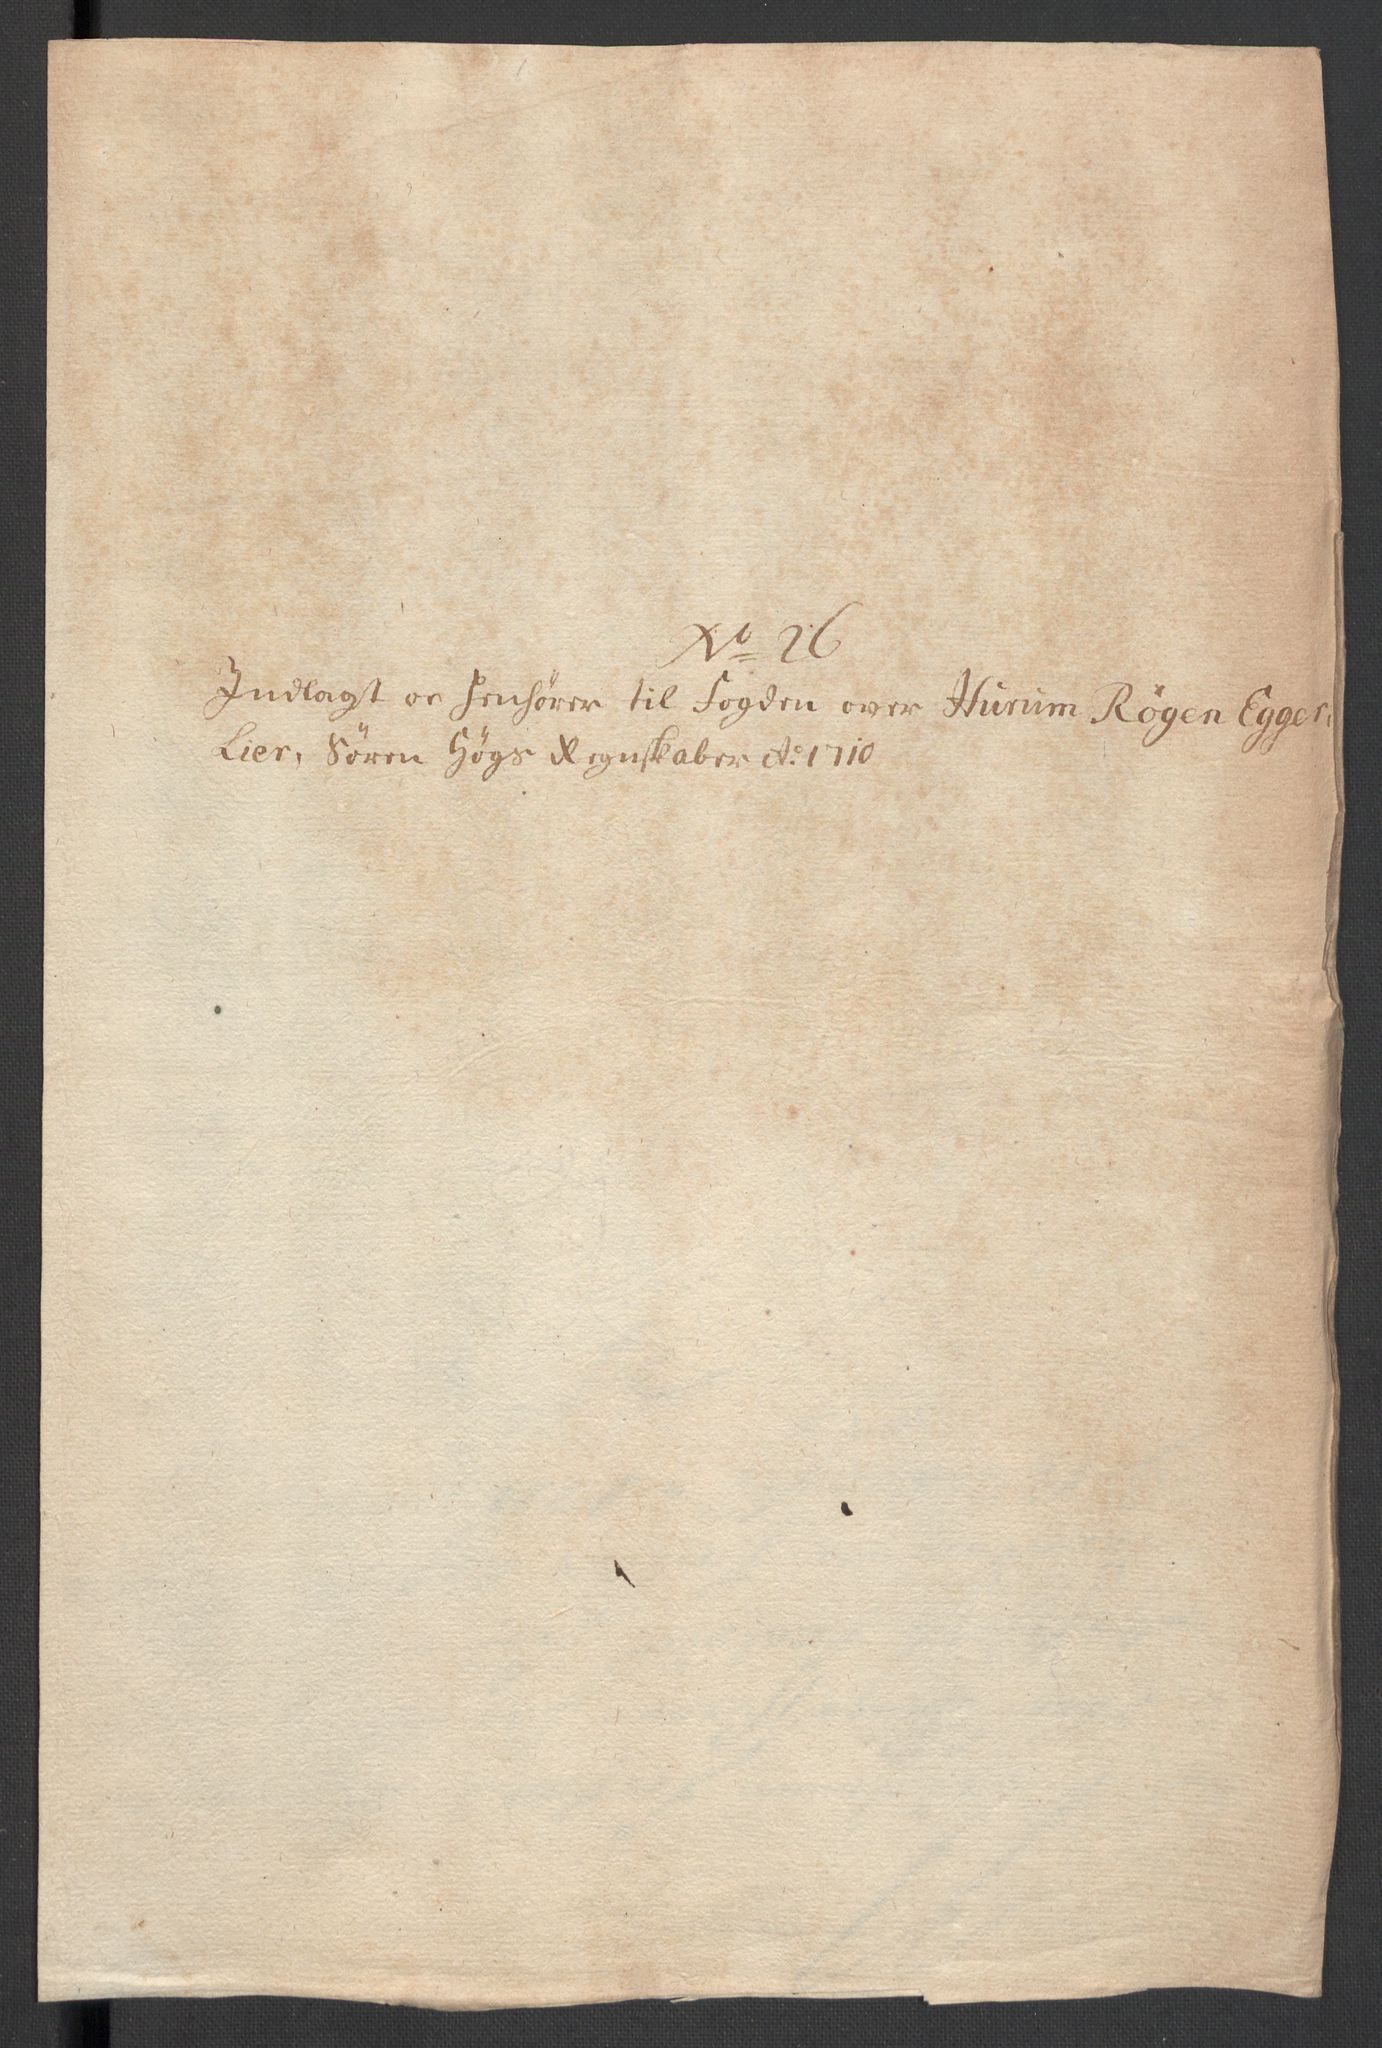 No 26
Indlagt oc henhörer til Fogden over Hurum Rögen Egger,
Lier, Sören Högs Regnskaber Ao: 1710